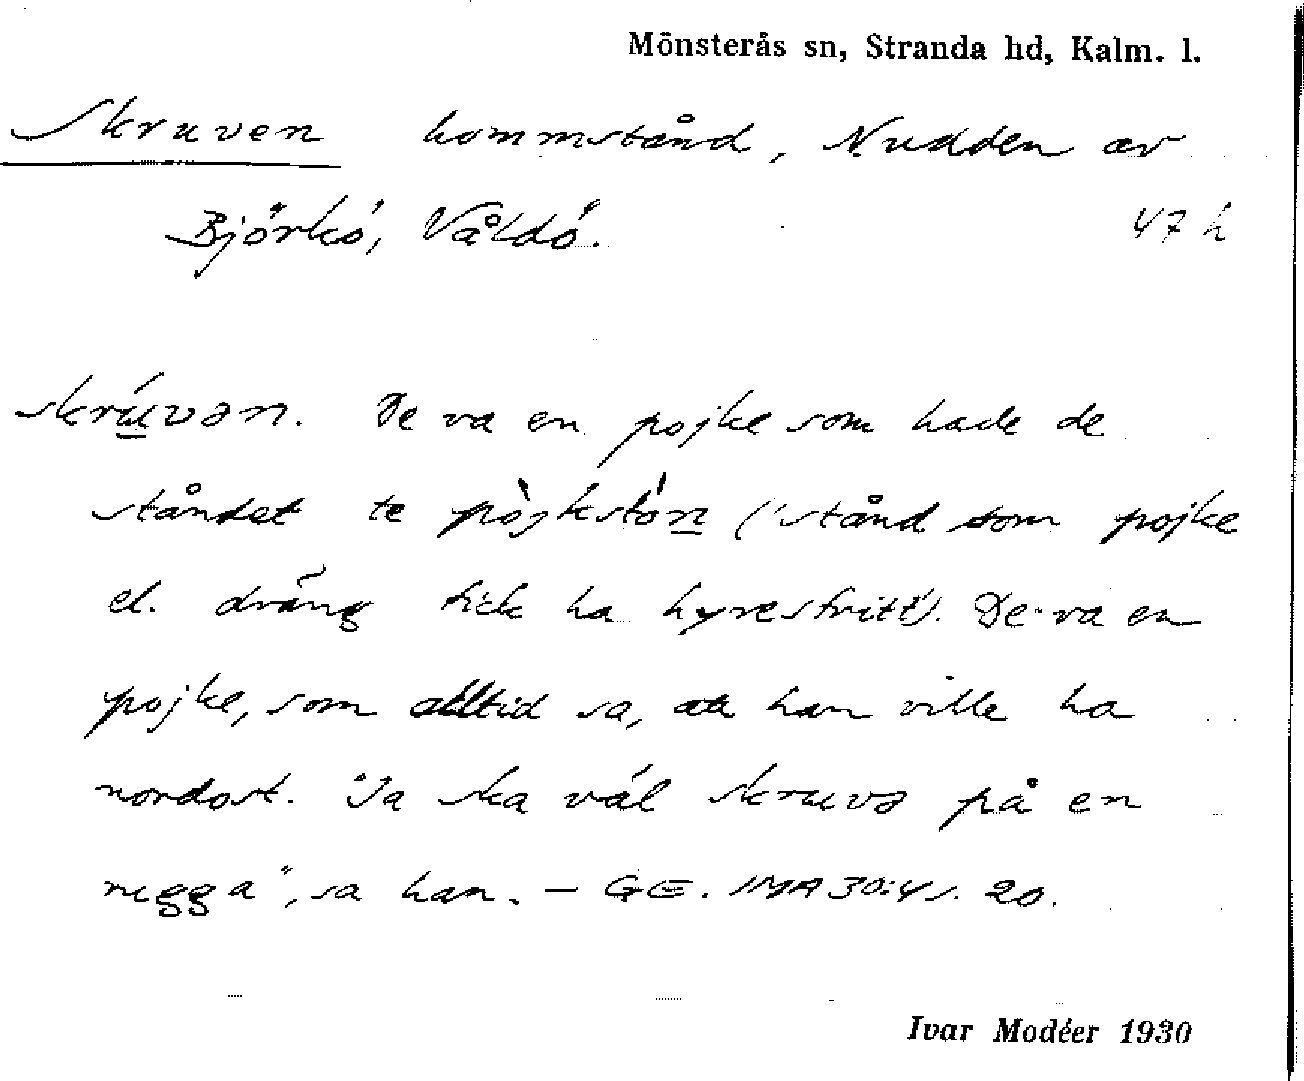 Mönsterås sn, Stranda hd, Kalm. l.
Skruven hommstånd, N.udden av
Björkö, Våldö. 47 h
skrúvən. De va en pojke som hade de
ståndet te pòjkstón ('stånd som pojke
el. dräng fick ha hyresfritt'). De va en
pojke, som alltid sa, att han ville ha
nordost. "Ja ska väl skruvə på en
nugga", sa han. – GE. IMA 30:4 s. 20.
Ivar Modéer 1930